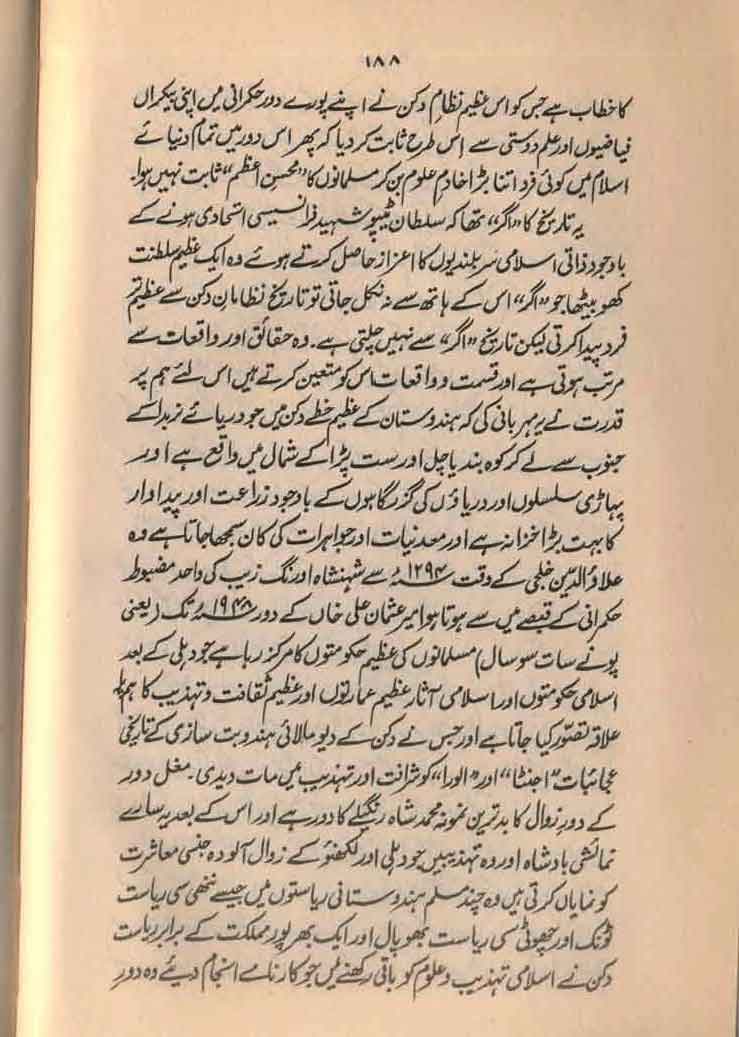 ۱۸۸
کا خطاب ہے جس کو اس عظیم نظامِ دکن نے اپنے پورے دور حکمرانی میں اپنی بیکراں
فیاضیوں اور علم دوستی سے اس طرح ثابت کر دیا کہ پھر اس دور میں تمام دنیائے
اسلام میں کوئی فرد اتنا بڑا خادمِ علوم بن کر مسلمانوں کا "محسن اعظم" ثابت نہیں ہوا۔
یہ تاریخ کا "اگر" تھا کہ سلطان ٹیپو شہید فرانسیسی اتحادی ہونے کے
باوجود ذاتی اسلامی سربلندیوں کا اعزاز حاصل کرتے ہوئے وہ ایک عظیم سلطنت
کھو بیٹھا جو "اگر" اس کے ہاتھ سے نہ نکل جاتی تو تاریخ نظامانِ دکن سے عظیم تر
فرد پیدا کرتی لیکن تاریخ "اگر" سے نہیں چلتی ہے۔ وہ حقائق اور واقعات سے
مرتب ہوتی ہے اور قسمت و واقعات اس کو متعین کرتے ہیں اس لئے ہم پر
قدرت نے یہ مہربانی کی کہ ہندوستان کے عظیم خطے دکن میں جو دریائے نربدا کے
جنوب سے لے کر کوہ بندیاچل اور ست پڑا کے شمال میں واقع ہے اور
پہاڑی سلسلوں اور دریاؤں کی گزرگاہوں کے باوجود زراعت اور پیداوار
کا بہت بڑا خزانہ ہے اور معدنیات اور جواہرات کی کان سمجھا جاتا ہے وہ
علاؤالدین خلجی کے وقت ۱۲۹۴ء سے شہنشاہ اورنگ زیب کی واحد مضبوط
حکمرانی کے قبضے میں سے ہوتا ہوا میر عثمان علی خاں کے دور ۱۹۴۸ء تک (یعنی
پونے سات سو سال) مسلمانوں کی عظیم حکومتوں کا مرکز رہا ہے جو دہلی کے بعد
اسلامی حکومتوں اور اسلامی آثار عظیم عمارتوں اور عظیم ثقافت و تہذیب کا ہم پلہ
علاقہ تصوّر کیا جاتا ہے اور جس نے دکن کے دیو مالائی ہندو بت سازی کے تاریخی
عجائبات "اجنٹا" اور "الورا" کو شرافت اور تہذیب میں مات دیدی۔ مغل دور
کے دورِ زوال کا بدترین نمونہ محمد شاہ رنگیلے کا دور ہے اور اس کے بعد یہ سارے
نمائشی بادشاہ اور وہ تہذیبیں جو دہلی اور لکھنؤ کے زوال آلودہ جنسی معاشرت
کو نمایاں کرتی ہیں وہ چند مسلم ہندوستانی ریاستوں میں جیسے ننھی سی ریاست
ٹونک اور چھوٹی سی ریاست بھوپال اور ایک بھرپور مملکت کے برابر ریاست
دکن نے اسلامی تہذیب و علوم کو باقی رکھنے میں جو کارنامے انجام دیئے وہ دورِ